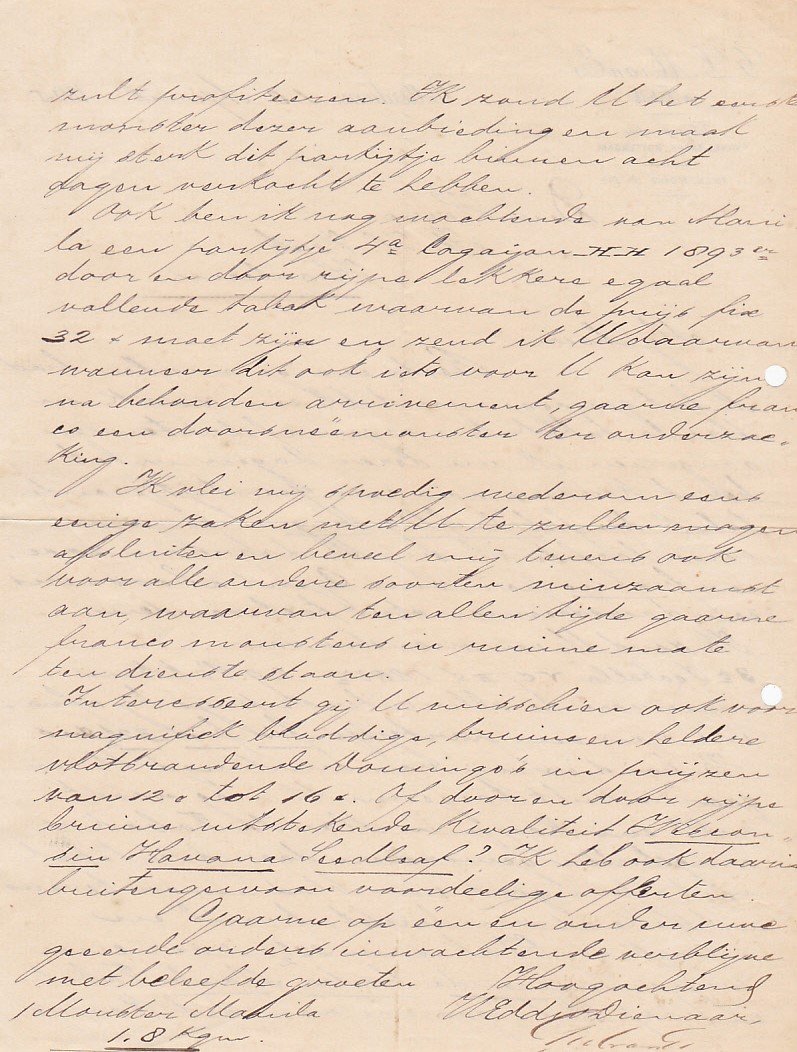 zult profiteeren. Ik zond U het eerste
monster dezer aanbieding en maak
mij sterk dit partijtje binnen acht
dagen verkocht te hebben.
Ook ben ik nog wachtende van Mani
la een partijtje 4a Cagayan H H 1893 er
door en door rijpe lekkere egaal
vallende tabak waarvan de prijs fix
32 c moet zijn en zend ik U daarvan
wanneer dit ook iets voor U kan zijn
na behouden arrivement, gaarne fran
co een doorsneêmonster ter onderzoe„
king.
Ik vlei mij spoedig wederom eens
eenige zaken met U te zullen mogen
afsluiten en beveel mij tevens ook
voor alle andere soorten minzaamst
aan, waarvan ten allen tijde gaarne
franco monsters in ruime mate
ten dienste staan.
Interesseert gij U misschien ook voor
magnifiek bladdige, bruine en heldere
vlotbrandende Domingo's in prijzen
van 12 c tot 16 c. Of door en door rijpe
bruine uitstekende kwaliteit Wiscon„
sin Havana Seedleaf? Ik heb ook daarin
buitengewoon voordeelige offerten.
Gaarne op een en ander uwe
geeerde orders inwachtende verblijve
met beleefde groeten Hoogachtend
1 Monster Manila UEddwDienaar,
1.8 Kgr.